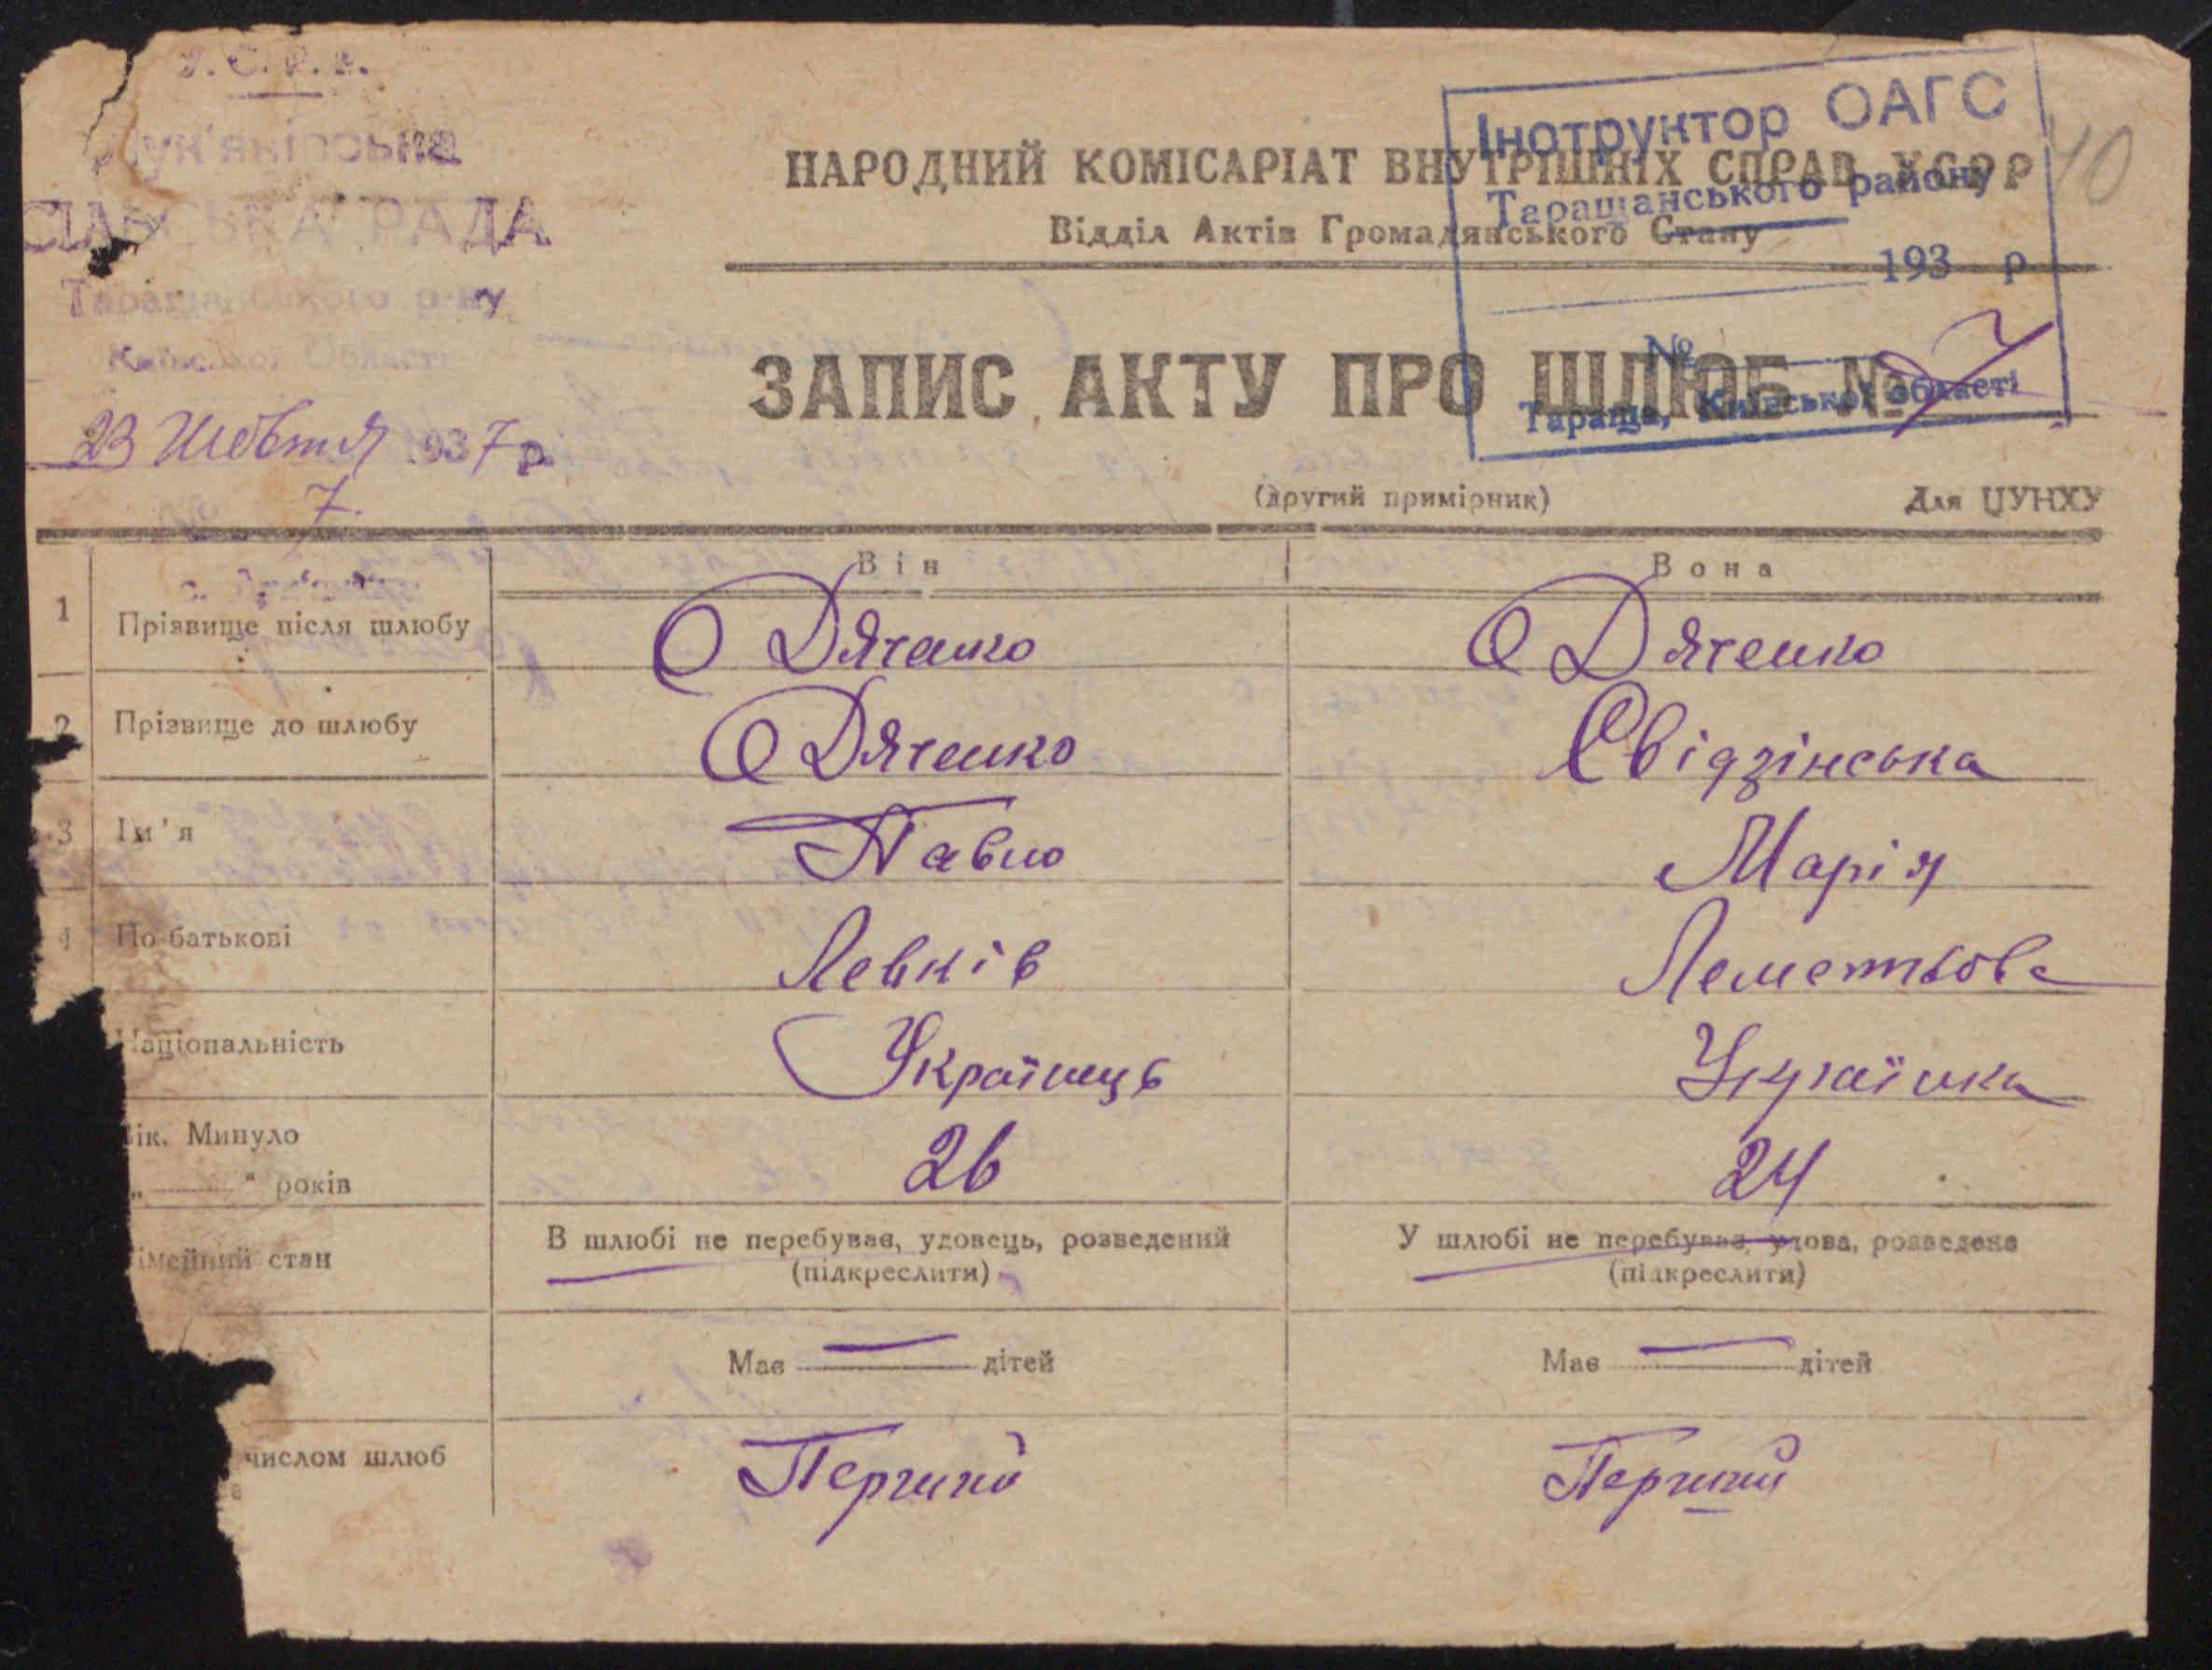 У.С.Р.Р.
Лук'янівська
СІЛЬСЬКА РАДА
Таращанського р-ну
Київської Області
23 Жовтня 1937 р.
7.
Інструктор ОАГС
Таращанського району
193 р
№
Тараща, Київської області
40
НАРОДНИЙ КОМІСАРІАТ ВНУТРІШНІХ СПРАВ УСРР
Відділ Актів Громадянського Стану
ЗАПИС АКТУ ПРО ШЛЮБ № 7
(другий примірник) Для ЦУНХУ
Він Вона
1 Прізвище після шлюбу Дяченко Дяченко
2 Прізвище до шлюбу Дяченко Свідзінська
3 Ім'я Павло Марія
4 По-батькові Левків Леметьова
Національність Українець Українка
ік. Минуло 26 24
„ “ років
імейний стан В шлюбі не перебував, удовець, розведений У шлюбі не перебуває, удова, розведена
(підкреслити) (підкреслити)
Має — дітей Має — дітей
числом шлюб Перший Перший